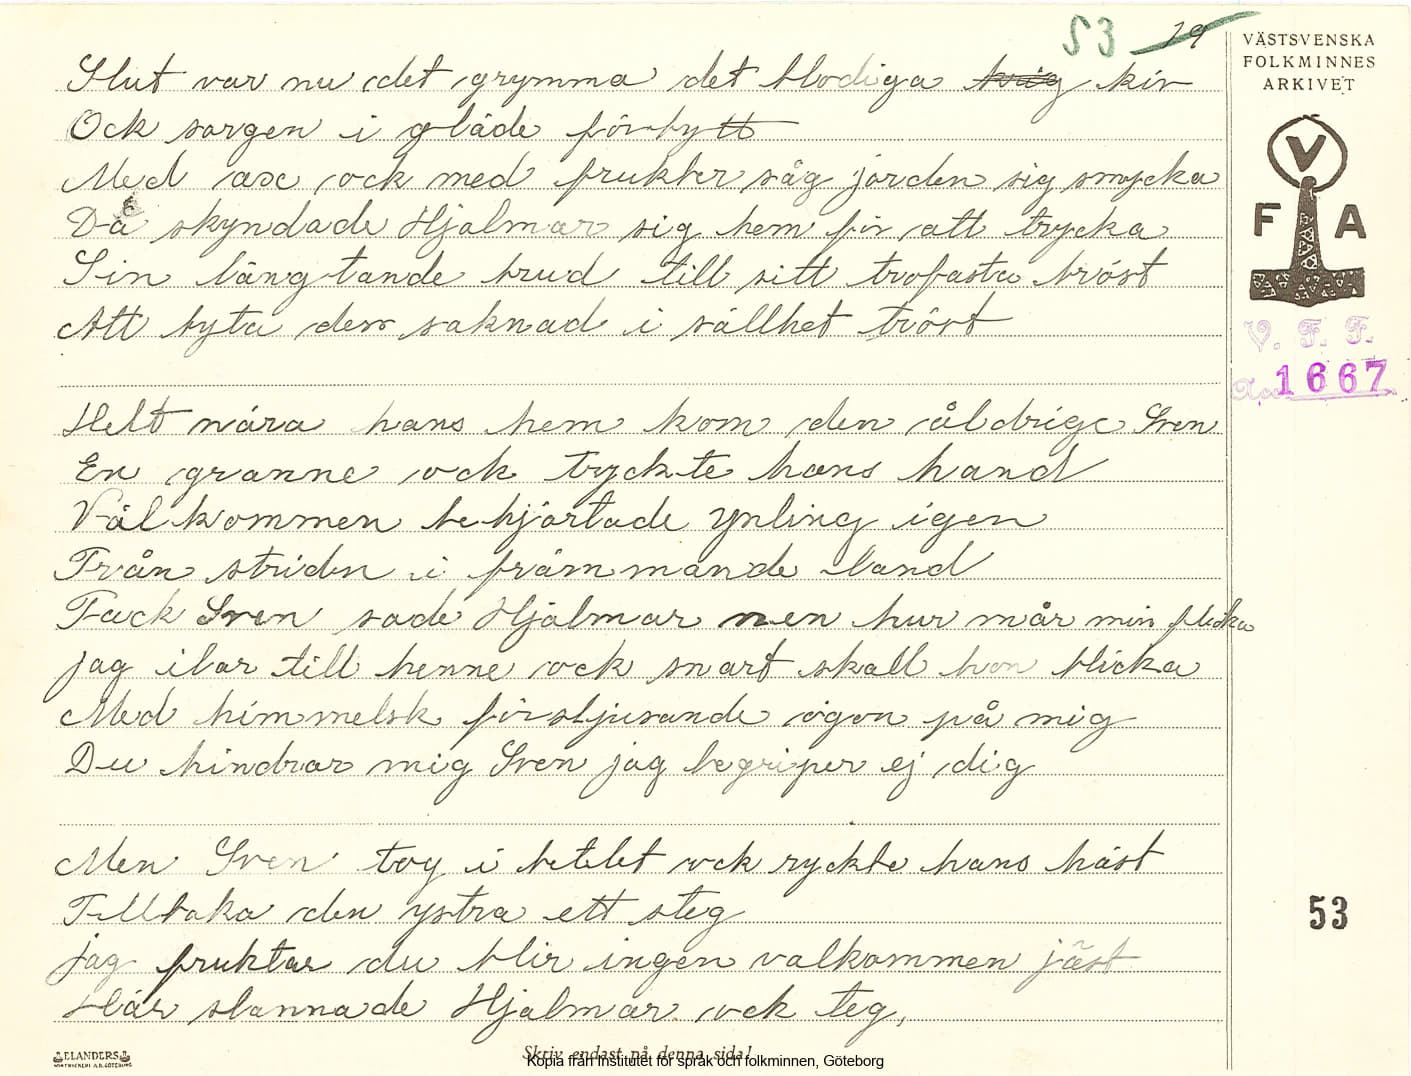 53 29
VÄSTSVENSKA
FOLKMINNES
ARKIVET
V
F A
V. F. F.
Acc 1667
Slut var nu det grymma det blodiga krig kiv
Ock sorgen i gläde förbytt
Med ax ock med frukter såg jorden sig smycka
Då skyndade Hjalmar sig hem för att trycka
Sin längtande brud till sitt trofasta bröst
Att byta den saknad i sällhet tröst
Helt nära hans hem kom den åldrige Sven
En granne ock tryckte hans hand
Välkommen behjärtade ynling igen
Från striden i främmande land
Tack Sven sade Hjalmar men hur mår min flicka
jag ilar till henne ock snart skall hon blicka
Med himmelsk förtjusande ögon på mig
Du hindrar mig Sven jag begriper ej dig
Men Sven tog i betslet ock ryckte hans häst
Tillbaka den ystra ett steg
jag fruktar du blir ingen valkommen jäst
Här stannade Hjalmar ock teg,
53
ELANDERS
Skriv endast på denna sida!
Kopia från Institutet för språk och folkminnen, Göteborg